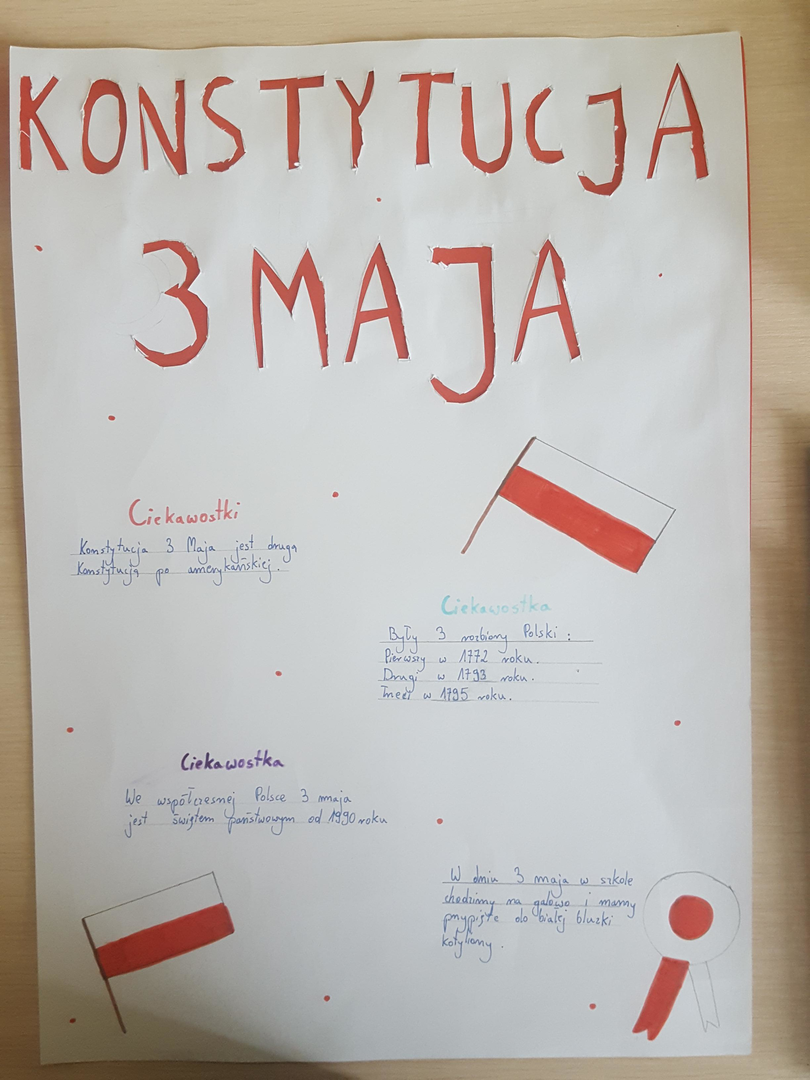 KONSTYTUCJA
3 MAJA
Ciekawostki
Konstytucja 3 Maja jest drugą
Konstytucją po amerykańskiej.
Ciekawostka
Były 3 rozbiory Polski :
Pierwszy w 1772 roku.
Drugi w 1793 roku.
Trzeci w 1795 roku.
Ciekawostka
We współczesnej Polsce 3 maja
jest świętem państwowym od 1990 roku
W dniu 3 maja w szkole
chodzimy na galowo i mamy
przypięte do białej bluzki
kotyliony.